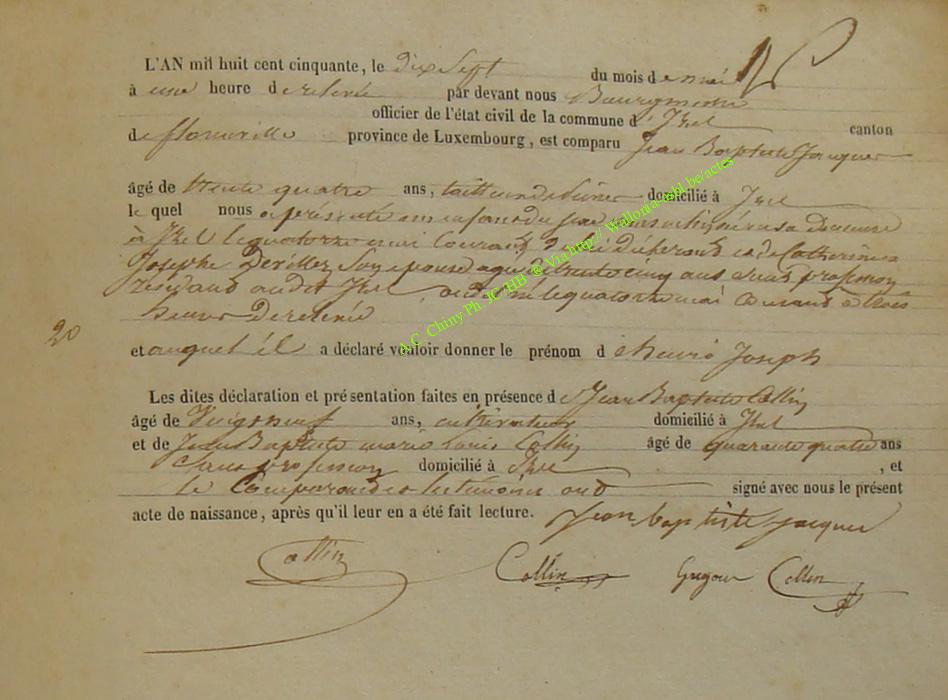 L'AN mil huit cent cinquante, le dix Sept du mois de mai
à une heure de relevée par devant nous Bourgmestre
officier de l'état civil de la commune d'Izel canton
de florenville province de Luxembourg, est comparu Jean Baptiste Jacques
âgé de trente quatre ans, domicilié à Izel
le quel nous a présenté un enfant du sexe masculin né en sa demeure
à Izel le quatorze mai Courant, de lui déclarant et de Catherine
Josephe Devillez Son épouse agée de trente cinq ans Sans profession
résidant audit Izel, le quatorze mai Courant à trois
heures de relevée
20
et auquel il a déclaré vouloir donner le prénom de henri Joseph
Les dites déclaration et présentation faites en présence de Jean Baptiste Collin
âgé de Vingt neuf ans, cultivateur domicilié à Izel
et de Jean Baptiste marie louis Collin âgé de quarante quatre ans
Sans profession domicilié à Izel, et
le Comparant et les témoins ont signé avec nous le présent
acte de naissance, après qu'il leur en a été fait lecture. Jean baptiste jacques
Collin Collin Collin
A.C. Chiny Ph. JC HB ® Via http://Wallonia-asbl.be/actes